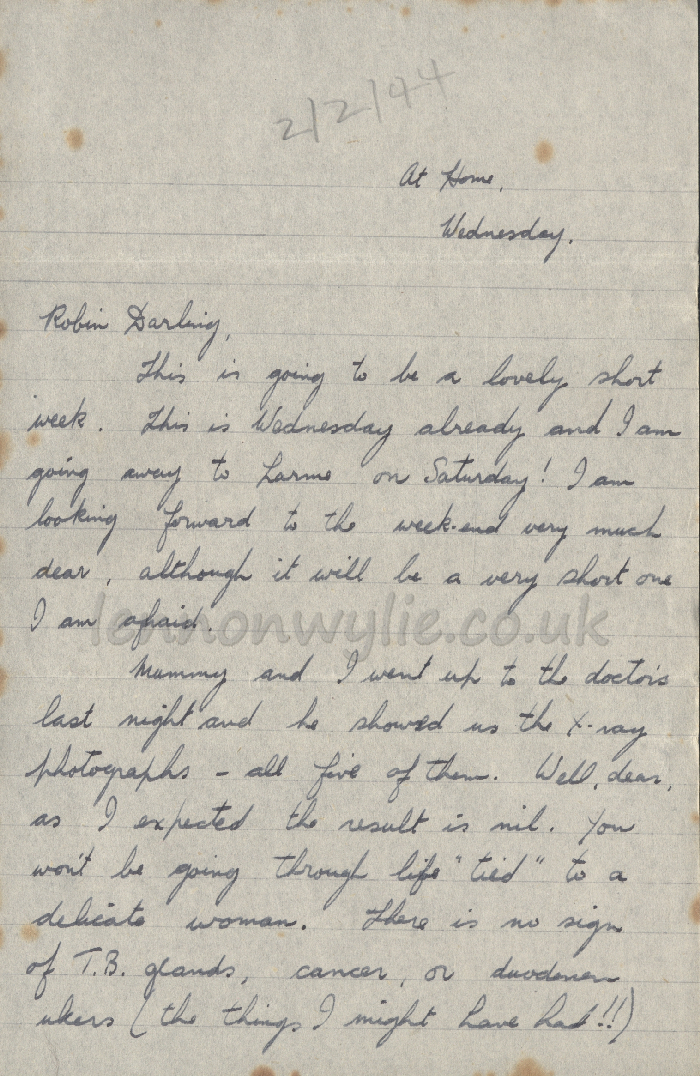 2/2/44
At Home,
Wednesday.
Robin Darling,
This is going to be a lovely short
week. This is Wednesday already and I am
going away to Larne on Saturday! I am
looking forward to the week-end very much
dear, although it will be a very short one
I am afraid.
lennonwylie.co.uk
Mummy and I went up to the doctor's
last night and he showed us the X-ray
photographs - all five of them. Well, dear,
as I expected the result is nil. You
won't be going through life "tied" to a
delicate woman. There is no sign
of T.B. glands, cancer, or duodenen
ulcers (the things I might have had!!)